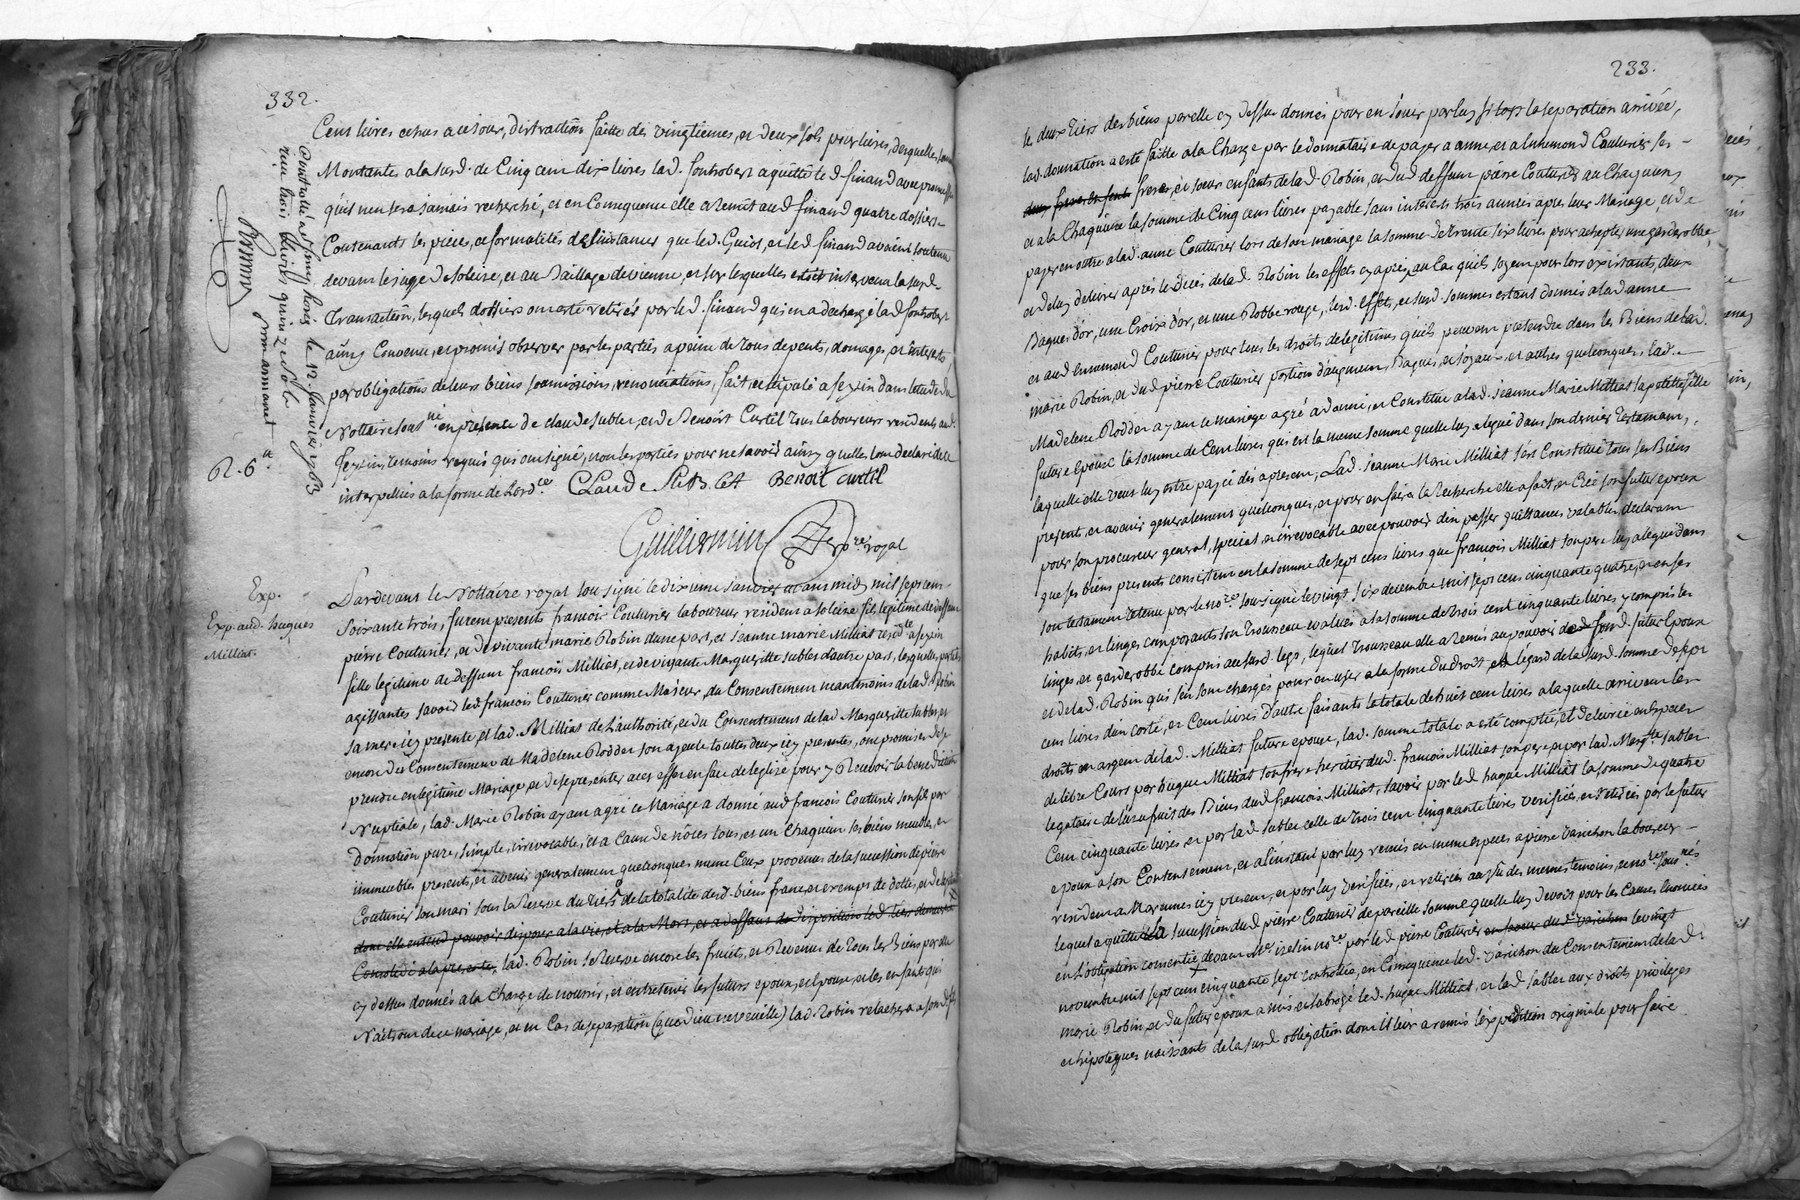 332.
Cens livres echus a ce jour, distraction faitte des vingtiemes, et deux sols pour livres, desquelles
Montantes a la susd. de Cinq cent dix livres lad. fontrobert a quitté led finand avec promesse
qu'il n'en sera jamais recherché, et en Consequence elle a remit aud finand quatre dossiers
Contenants les piece, et formalités des instances que led. Guiot, et led finand avaient soutenu
devant le juge de soleize, et au Baillage de vienne, et sur lesquelles etoit intervenu la susd.
Transaction, lesquels dossiers ont esté retirés par led. finand qui en a dechargé lad fontrobert
ainsy Convenu, et promis observer par les parties a peine de tous depents, domages, et interests
par obligations de leurs biens soumissions, renonciations, fait, et stipulé a seyxin dans l'etude du
Nottaire sousné en presence de claude sublet, et de Benoist Curtil tous laboureurs residents aud.
seyxin, temoins requis qui ont signé, non les parties pour ne savoir ainsy quelles l'ont declaré de ce
interpellées a la forme de l'ordce. CLaude SubLet Benoit curtil
Guillermin nre royal
Controllé a st sime horés le 12. Janvier 1763
reçu trois livres quinze sols
R. 6tt
Exp.
Exp. aud. hugues
Milliat.
Pardevant le Nottaire royal sousigné le dixieme janvier avant midy mil sept cent
soixante trois, furent presents francois Couturier laboureur resident a soleize fils legitime de deffunt
pierre Couturier, et de vivante marie Robin d'une part, et Jeanne marie Milliat residte a seyxin
fille legitime de deffunt francois Milliat, et de vivante Margueritte sublet d'autre part, lesquelles parties
agissantes savoir led. francois Couturier comme Majeur, du Consentement neantmoins de lad Robin
sa mere icy presente, et lad. Milliat de l'authorité, et du Consentement de lad Margueritte sublet, et
encore du Consentement de Madelene Rodder son ayeule touttes deux icy presentes, ont promis de se
prendre en legitime Mariage et de se presenter a cet effet en face de l'eglise pour y Recevoir la benediction
Nuptiale, lad. Marie Robin ayant agré ce Mariage a donné aud francois Couturier son fils par
donnation pure, simple, irrevocable, et a Cause de nôces tous, et un Chaqu'un ses biens meubles, et
immeubles presents, et avenir generalement quelconques meme Ceux provenus de la succession de pierre
Couturier son mari sous la Reserve du tiers de la totalité desd. biens franc, et exempt de dettes, et de
dont elle entend pouvoir disposer a la vie, et a la Mort, et a deffaut de disposition led tier demeurera
Consolidé a la presente, lad. Robin se Reserve encore les fruits, et Revenus de tous les Biens par elle
cy dessus donnés a la Charge de nourrir, et entretenir les futurs epoux, et epouse, et les enfants qui
Naitront de ce mariage, et en Cas de separation (que dieu ne veuille) lad. Robin relachera a son d. fils
233.
le deux tiers des biens par elle cy dessus donnés pour en jouir par luy si tost la separation arrivée,
lad. donnation a esté faitte a la Charge par le donnataire de payer a anne, et a Ennemond Couturier ses
freres, et soeur enfants de lad. Robin, et dud deffunt pierre Couturier au Chaquuns
et a la Chaquune la somme de Cinq cens livres payable sans interests trois années apres leur Mariage, et de
payer en outre a lad. anne Couturier lors de son mariage la somme de trente six livres pour achepter une garderobbe,
et de luy delivrer après le deces de lad Robin les effets cy après, au Cas qu'ils soyent pour lors existants, deux
Bagues d'or, une Croix d'or, et une Robbe rouge, lesd. effets, et susd. sommes estant donnés a lad anne
et aud ennemond Couturier pour tous les droits de legitimes qu'ils peuvent pretendre dans les Biens de lad.
marie Robin, et dud pierre Couturier portion d'augment, Bagues, et joyaux, et autres quelconques, lad.
Madelene Rodder ayant ce mariage agré a donné, et Constitué a lad. Jeanne Marie Milliat sa petitte fille
future epouse la somme de Cent livres qui est la meme somme quelle luy a legué dans son dernier testament,
laquelle elle veut luy estre payée dès apresent, Lad. jeanne Marie Milliat s'est Constitué tous ses Biens
present, et avenir generalement quelconques, et pour en faire la Recherche elle a fait, et Creé son futur epoux
pour son procureur general, special, et irrevocable avec pouvoir d'en passer quittances valables, declarant
que ses biens presents consistent en la somme de sept cens livres que francois Milliat son pere luy a legué dans
son testament retenu par le nore sousigné le vingt six decembre mil sept cens cinquante quatre, et en ses
habits, et linges composants son trousseau evalués a la somme de trois cent cinquante livres y compris les
linges, et garderobbe compris au susd. legs, lequel trousseau elle a remis au pouvoir dud. futur epoux
et de lad. Robin qui s'en sont chargés pour en user a la forme du droit et a l'égard de la susd. somme de sept
cens livres d'un Corté, et Cent livres d'autre faisants le totale de huit cent livres a laquelle arrivent les
droits en argent de lad. Milliat future epouse, lad. somme totale a esté comptée, et delivrée en Especes
de libre Cours par hugue Milliat son frere heritier dud. francois Milliat son pere et par lad. Margtte sublet
legataire de l'usufruit des Biens dud francois Milliat, savoir par led hugue Milliat la somme de quatre
Cent cinquante livres, et par lad sublet celle de trois cent cinquante livres verifiée, et retirée par le futur
epoux a son Contentement, et a l'instant par luy remis en meme especes a pierre Varichon laboureur
resident a Marennes icy present, et par luy verifiées, et retirées au vû des memes temoins, et nore sousnés
lequel a quitté la succession dud pierre Couturier de pareille somme quelle luy devoit pour les Causes enoncées
en l'obligation consentie devant Me iselin nore par led pierre Couturier en faveur dud Varichon le vingt
novembre mil sept cent cinquante sept controllée, en Consequence led. varichon du Consentement de lad.
marie Robin, et du futur epoux a mis, et subrogé led. hugue Milliat, et lad sublet aux droits privileges
et hipoteques naissants de la susd obligation dont il leur a remis l'expedition originale pour faire